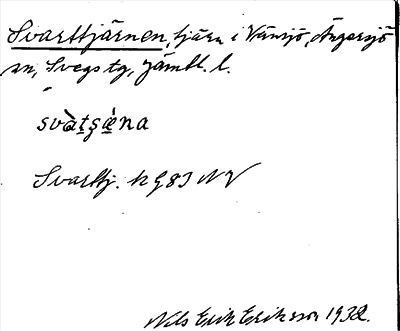 Svarttjärnen, tjärn i Vänsjö, Ängersjö
sn, Svegs tg, Jämtl. l.
svàtsæ̀na
Svarttj. h G83 NV
Nils Erik Eriksson 1932.